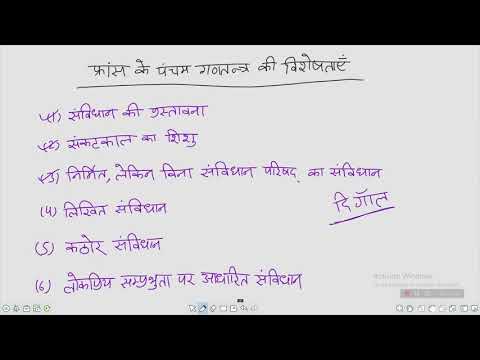 फ्रांस के पंचम गणतन्त्र की विशेषताएँ
(1) संविधान की प्रस्तावना
(2) संकटकाल का शिशु
(3) निर्मित, लेकिन बिना संविधान परिषद् का संविधान
(4) लिखित संविधान
दि गॉल
(5) कठोर संविधान
(6) लोकप्रिय सम्प्रभुता पर आधारित संविधान
Activate Windows